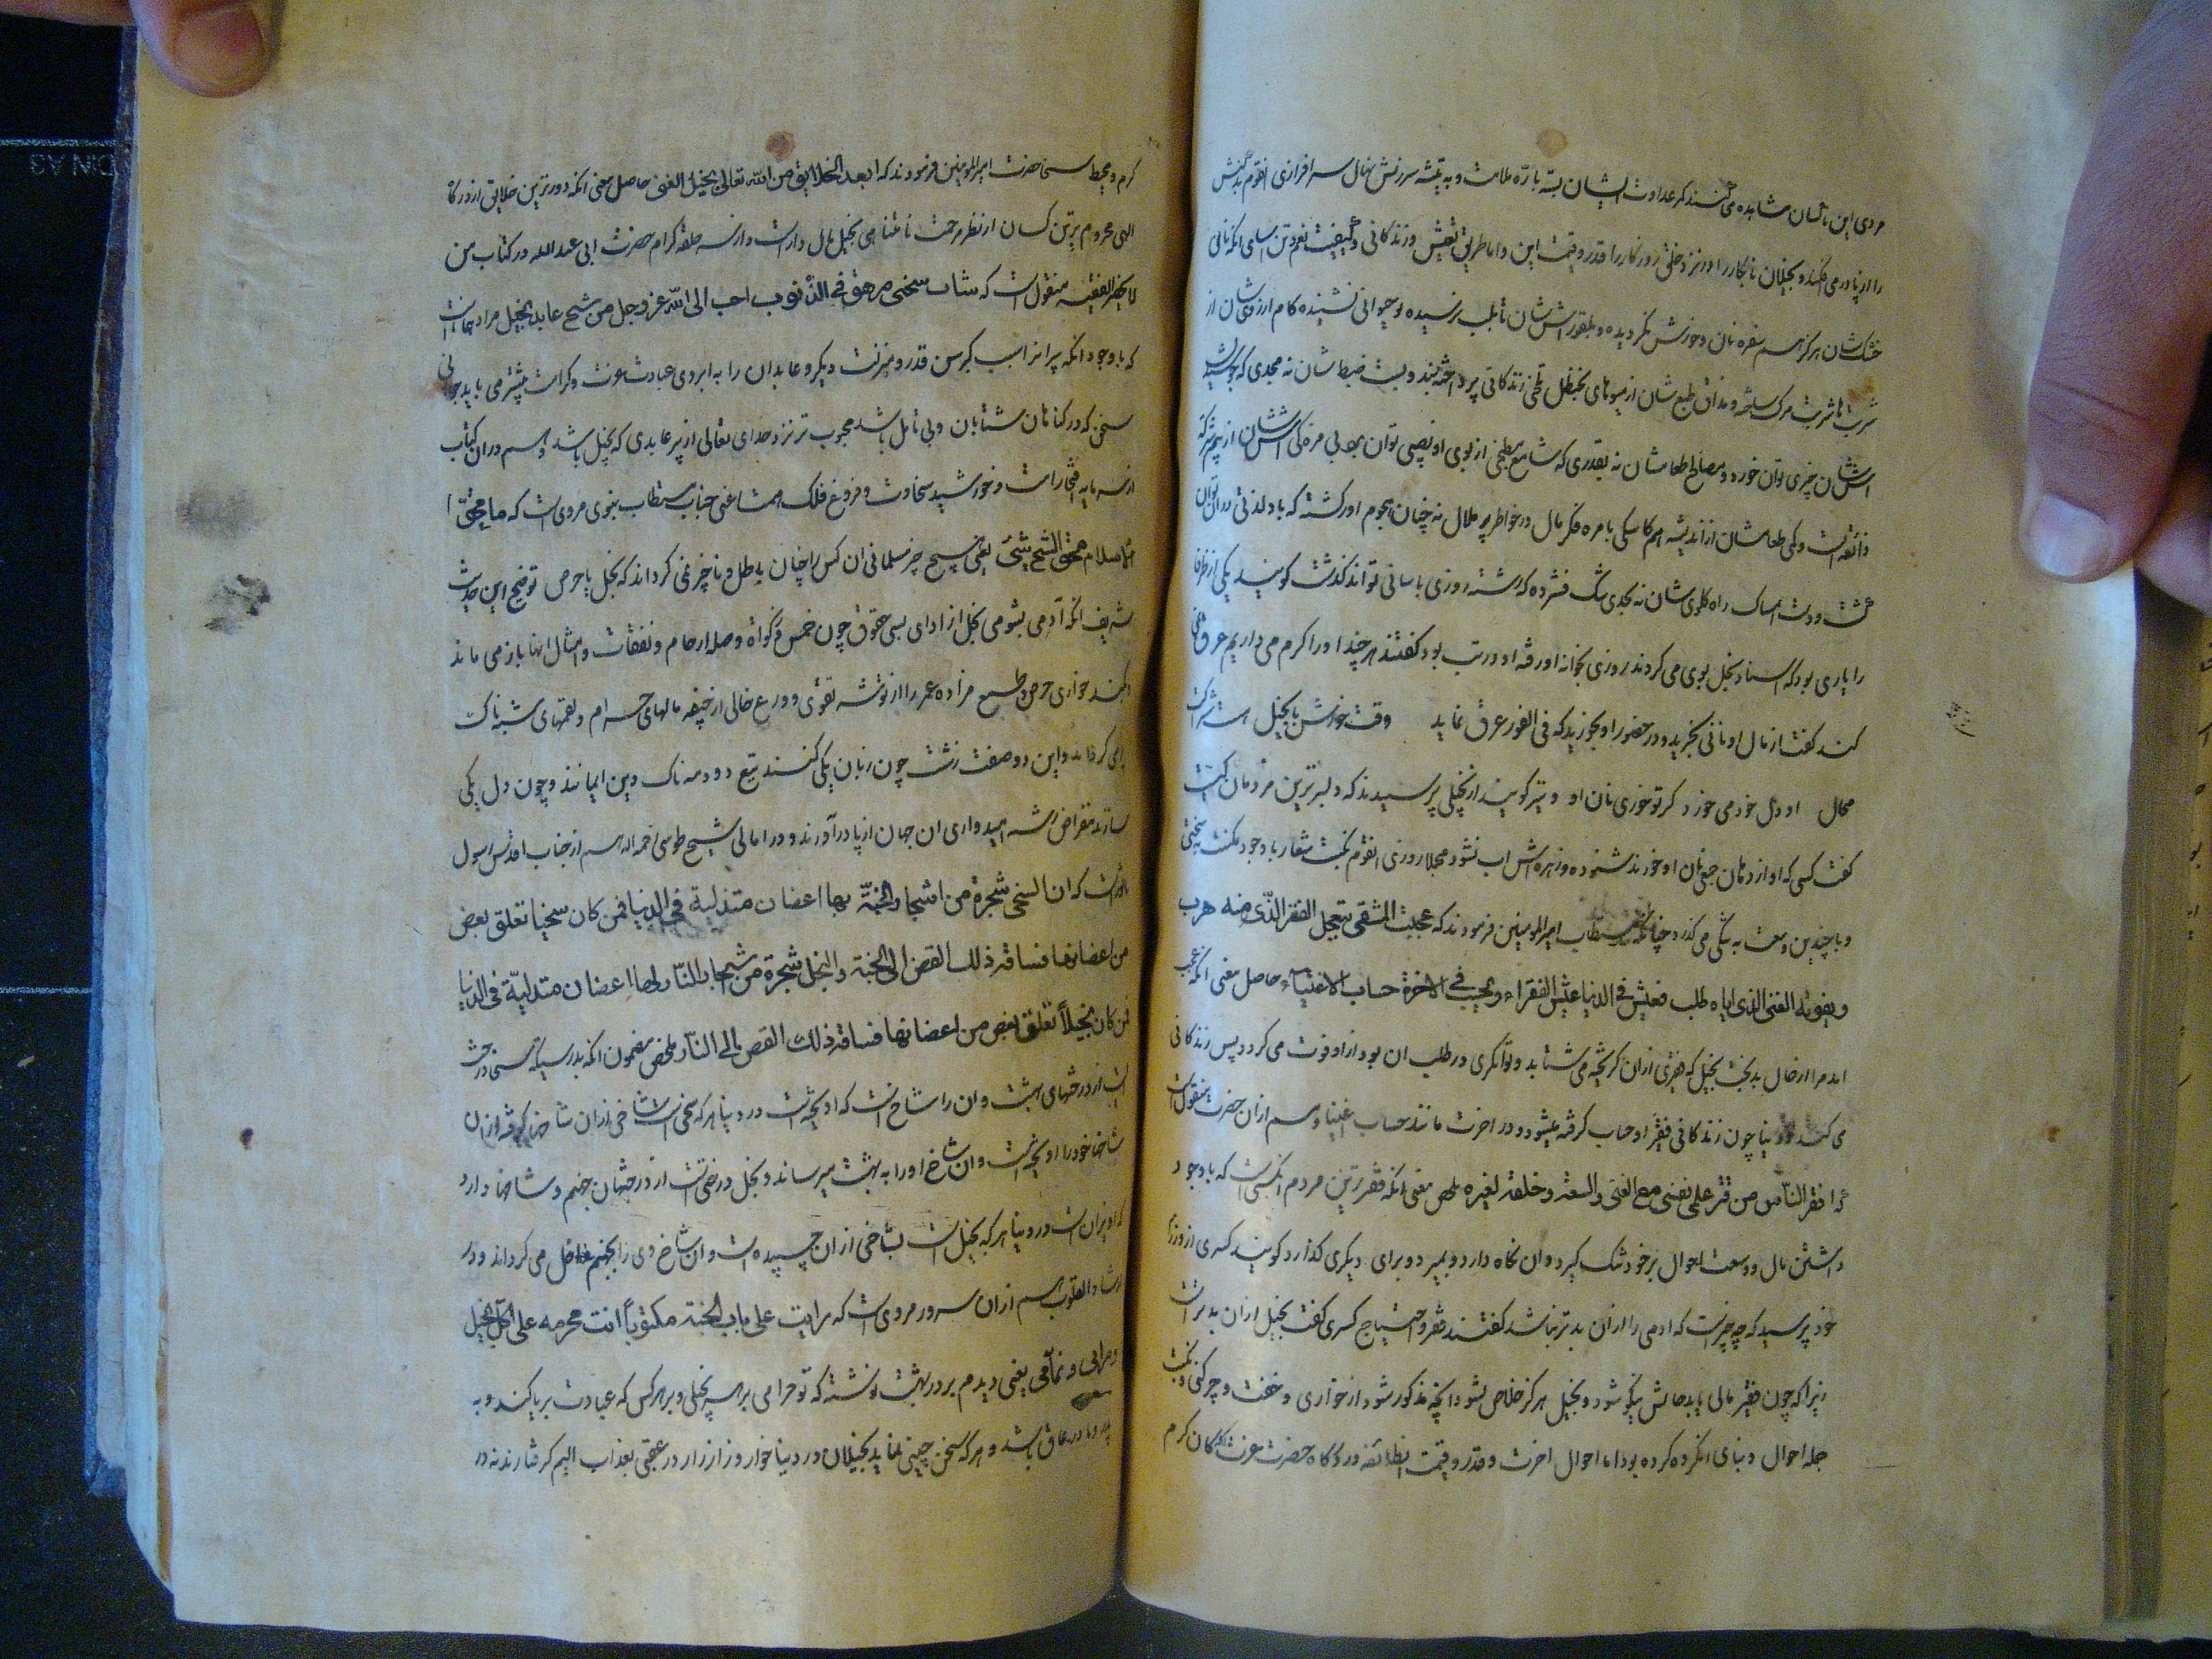 مردی این ناکسان مشاهده می کنند کمر عداوت ایشان بسته باره ملامت و به تیشه سرزنش نهال سرافرازی انقوم بدکنش
را از پا در می افکنند و بخیلان نابکار را در نزد خلق روزگار قدر و قیمت این و اما طریق تعیش و زندگانی و کیفیت تنعم
خشک شان هرگز بسم سفره نان و خورش نکردیده و بلقور اش شان تا بلب نرسیده بوی چوانی نشنیده کام ارزوی شان از
شربتها شربت مرک و مذاق طبع شان از میوهای بحنظل تلخی زندگانی پرداخته
اش شان چیزی توان خورد و مصالح طعام شان نه بقدری که شامع مطبخی از بوی او نصیبی توان برد بی مزه کی اش شان از
ذائقه است و کمی طعام شان از اندیشه هم کاسکی با مره فکر مال در خواطر پر ملال نه چنان هجوم اور کشته که یاد لذتی در ان توان
گشت و دست امساک راه کلوی شان نه بحدی تنگ فشرده که رشته روزی باسانی تواند گذشت گویند یکی از ظرفا
را یاری بود که اسناد بخل بوی می کردند روزی بخانه او رفته او در تب بود گفتند هر چند او را گرم می داریم عرق نمی
کند گفت از مال او نانی بخرید و در حضور او بخورید که فی الفور عرق نماید وقت خورش با بخیل
محال او دل خود می خورد گر تو خوری نان او و نیز گویند از بخیلی پرسیدند که دلیر ترین مردمان کیست
گفت کسی که اواز دهان جمعی نان او خورند شنوده و زهره اش اب نشود مجملا روزی انقوم نکبت شعار با وجود مکنت به سختی
و با چندین وسعت به تنگی می گذرد چنانکه امیرالمومنین فرمودند که عجبت للشقی یتعجل الفقر الذی منه هرب
و یفوته الغنی الذی ایاه طلب فیعیش فی الدنیا عیش الفقراء و یحاسب فی الاخرة حساب الاغنیاء حاصل معنی انکه عجب
امد مرا از حال بدبخت بخیل که فقری از ان گریخته می شتابد و توانگری در طلب ان بود از او فوت می گردد پس زندگانی
می کند در دنیا چون زندگانی فقیر او حساب گرفته میشود در اخرت مانند حساب اغنیا و هم از ان حضرت منقول است
که افقر الناس من قتر علی نفسه مع الغنی والسعة و خلفه لغیره ملخص معنی انکه فقیر ترین مردم انکسی است که با وجود
داشتن مال و وسعت احوال بر خود تنگ گیرد و ان نگاه دارد و بمیرد و برای دیگری گذارد گویند کسری از وزرا
خود پرسید که چه چیز است که ادمی را از ان بدتر نباشد گفتند فقر و احتیاج کسری گفت بخیل از ان بدتر است
زیرا که چون فقیر مالی یابد حالش نیکو شود و بخیل هرگز خلاص نشود انچه مذکور شود از خواری و خفت و چرکنی و نکبت
جمله احوال دنیای انگروه کرده بود اما احوال اخرت و قدر و قیمت انطائفه در درگاه حضرت عزت کان کرم
کرم و محیط سخا حضرت امیرالمومنین فرمودند که ابعد الخلایق من الله تعالی البخیل الغنی حاصل معنی انکه دورترین خلایق از درگاه
الهی محروم ترین کسان از نظر مرحمت نامتناهی بخیل مال دار است و از سر حلقه کرام حضرت ابی عبدالله در کتاب من
لا یحضر الفقیه منقول است که شاب سخی مرهق فی الذنوب احب الی الله عز و جل من شیخ عابد بخیل مراد
که با وجود انکه پیرانرا سبب کبر سن قدر و منزلت دیگر و عابدان را به ابروی عبادت عزت و کرامت بیشتر می باید جوانی
سخی که در گناهان شتابان و بی تامل باشد محبوب تر نزد خدای تعالی از پیر عابدی که بخیل باشد و هم در ان کتاب
از سرمایه افتخار امت و خورشید سخاوت و فروغ فلک همت اعنی جناب مستطاب نبوی مروی است که ما محق ا
لاسلام محق الشح شیء یعنی هیچ چیز مسلمانی ان کس را چنان باطل و ناچیز نمی گرداند که بخل یا حرص توضیح این حدیث
شریف انکه آدمی بشومی بخل از ادای بسی حقوق چون خمس و زکواة و صله ارحام و نفقات و امثال انها باز می ماند
حرص و طمع مزاده عمر را از توشه تقوی و ورع خالی از جیفه مالهای حرام و لقمهای شبه ناک
می گرداند و این دو صفت زشت چون زبان یکی کنند تیغ دو دمه ناک دین ایمانند و چون دل یکی
سازند مقراض رشته امیدواری ان جهان از پا درآورند و در امالی شیخ طوسی رحمه الله از جناب اقدس رسول
که ان السخی شجرة من اشجار الجنة بها اغصان متدلیة فی الدنیا فمن کان سخیا تعلق بغصن
من اغصانها فساقه ذلک الغصن الی الجنة والبخل شجرة من اشجار النار لها اغصان متدلیة فی الدنیا
فمن کان بخیلا تعلق بغصن من اغصانها فساقه ذلک الغصن الی النار ملخص مضمون انکه بدرستیکه سخا درخت
است از درختهای بهشت و ان را شاخ است که اویخته است در دنیا هر که سخی است شاخی از ان شاخها گرفته و ان
شاخها خود را اویخته است و ان شاخ او را به بهشت میرساند و بخل درختی است از درختهای جهنم و شاخها دارد
که اویزان است در دنیا هر که بخیل است بشاخی از ان چسپیده است و ان شاخ وی را بجهنم داخل می گرداند و در
ارشاد القلوب هم از ان سرور مروی است که رایت علی باب الجنة مکتوبا انت محرمه علی کل بخیل
و مرائی و نمام یعنی دیدم بر در بهشت نوشته که تو حرامی بر هر بخیلی و بر هر کس که عبادت بریا کند و به
پدر و مادر عاق باشد و هر که سخن چینی نماید بخیلان در دنیا خوار و زار زار در عقبی بعذاب الیم گرفتارند نه در